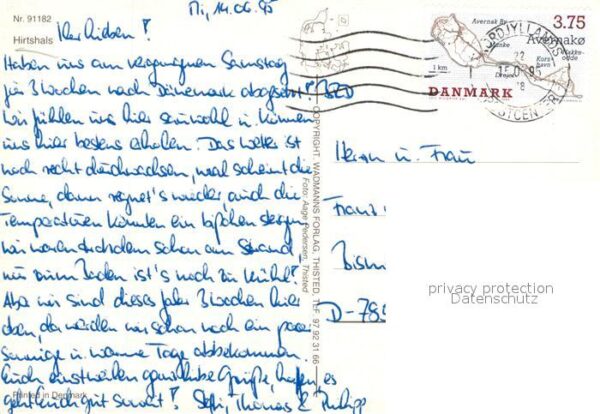 Nr. 91182
Hirtshals
Mi, 14.06.95
Ihr Lieben!
Haben uns am vergangenen Samstag
für 3 Wochen nach Dänemark abgesetzt!
Wir fühlen uns hier sehr wohl u. können
uns hier bestens erholen. Das Wetter ist
noch recht durchwachsen, mal scheint die
Sonne, dann regnet's wieder, auch die
Temperaturen könnten ein bißchen steigen.
Wir waren trotzdem schon am Strand,
nur zum Baden ist's noch zu kühl!
Aber wir sind dieses Jahr 3 Wochen hier
oben, da werden wir schon noch ein paar
sonnige u. warme Tage abbekommen.
Euch einstweilen ganz liebe Grüße, hoffen, es
geht Euch gut soweit! Thomas & Philipp
Printed in Denmark
COPYRIGHT. WADMANNS FORLAG, THISTED. TLF. 97 92 31 66
Foto: Aage Pedersen, Thisted
3.75
Avernak By
Avernakø
Munke
Korshavn
Drejet
1 km
DANMARK
NORDJYLLANDS
POSTCENTER
Herrn u. Frau
Franz
Bism
D-78
privacy protection
Datenschutz